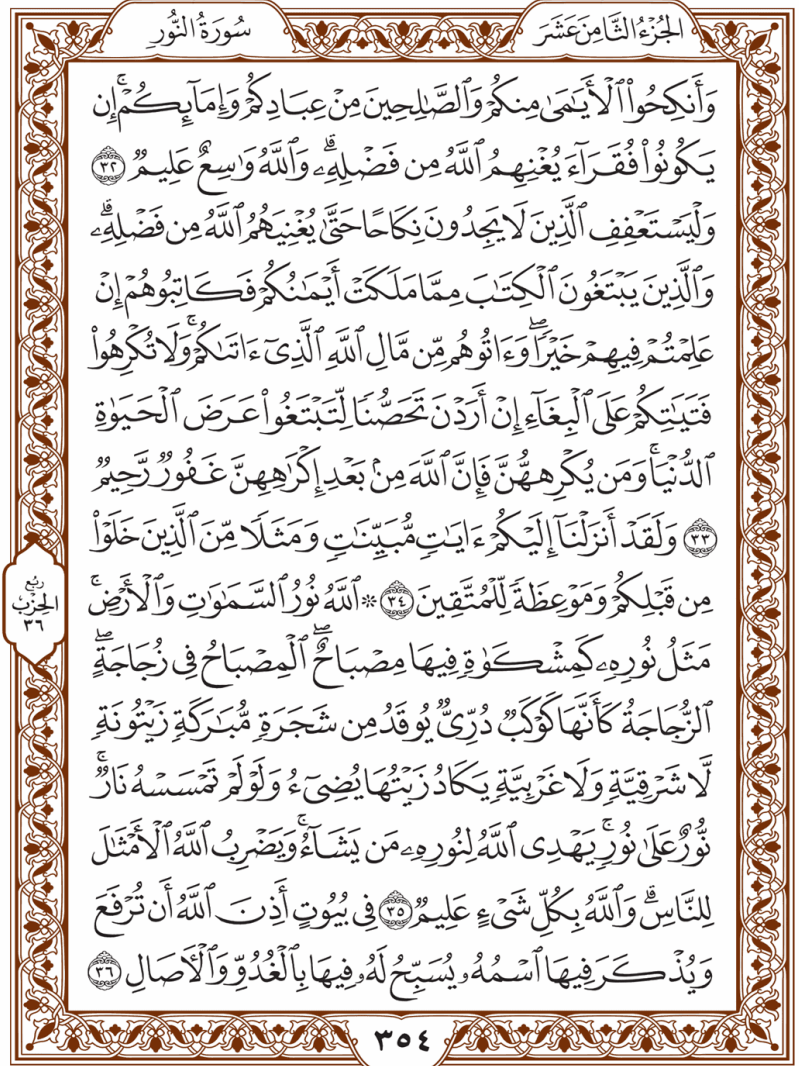 الجُزْءُ الثَّامِنَ عَشَرَ
سُورَةُ النُّورِ
وَأَنكِحُوا۟ ٱلْأَيَـٰمَىٰ مِنكُمْ وَٱلصَّـٰلِحِينَ مِنْ عِبَادِكُمْ وَإِمَآئِكُمْۚ إِن
يَكُونُوا۟ فُقَرَآءَ يُغْنِهِمُ ٱللَّهُ مِن فَضْلِهِۦۗ وَٱللَّهُ وَٰسِعٌ عَلِيمٌ ٣٢
وَلْيَسْتَعْفِفِ ٱلَّذِينَ لَا يَجِدُونَ نِكَاحًا حَتَّىٰ يُغْنِيَهُمُ ٱللَّهُ مِن فَضْلِهِۦۗ
وَٱلَّذِينَ يَبْتَغُونَ ٱلْكِتَـٰبَ مِمَّا مَلَكَتْ أَيْمَـٰنُكُمْ فَكَاتِبُوهُمْ إِنْ
عَلِمْتُمْ فِيهِمْ خَيْرًاۖ وَءَاتُوهُم مِّن مَّالِ ٱللَّهِ ٱلَّذِىٓ ءَاتَىٰكُمْۚ وَلَا تُكْرِهُوا۟
فَتَيَـٰتِكُمْ عَلَى ٱلْبِغَآءِ إِنْ أَرَدْنَ تَحَصُّنًا لِّتَبْتَغُوا۟ عَرَضَ ٱلْحَيَوٰةِ
ٱلدُّنْيَاۚ وَمَن يُكْرِههُّنَّ فَإِنَّ ٱللَّهَ مِنۢ بَعْدِ إِكْرَٰهِهِنَّ غَفُورٌ رَّحِيمٌ
٣٣ وَلَقَدْ أَنزَلْنَآ إِلَيْكُمْ ءَايَـٰتٍ مُّبَيِّنَـٰتٍ وَمَثَلًا مِّنَ ٱلَّذِينَ خَلَوْا۟
مِن قَبْلِكُمْ وَمَوْعِظَةً لِّلْمُتَّقِينَ ٣٤ ۞ ٱللَّهُ نُورُ ٱلسَّمَـٰوَٰتِ وَٱلْأَرْضِۚ
مَثَلُ نُورِهِۦ كَمِشْكَوٰةٍ فِيهَا مِصْبَاحٌۖ ٱلْمِصْبَاحُ فِى زُجَاجَةٍۖ
ٱلزُّجَاجَةُ كَأَنَّهَا كَوْكَبٌ دُرِّىٌّ يُوقَدُ مِن شَجَرَةٍ مُّبَـٰرَكَةٍ زَيْتُونَةٍ
لَّا شَرْقِيَّةٍ وَلَا غَرْبِيَّةٍ يَكَادُ زَيْتُهَا يُضِىٓءُ وَلَوْ لَمْ تَمْسَسْهُ نَارٌۚ
نُّورٌ عَلَىٰ نُورٍۚ يَهْدِى ٱللَّهُ لِنُورِهِۦ مَن يَشَآءُۚ وَيَضْرِبُ ٱللَّهُ ٱلْأَمْثَـٰلَ
لِلنَّاسِۗ وَٱللَّهُ بِكُلِّ شَىْءٍ عَلِيمٌ ٣٥ فِى بُيُوتٍ أَذِنَ ٱللَّهُ أَن تُرْفَعَ
وَيُذْكَرَ فِيهَا ٱسْمُهُۥ يُسَبِّحُ لَهُۥ فِيهَا بِٱلْغُدُوِّ وَٱلْـَٔاصَالِ ٣٦
رُبْع
الحِزْب
٣٦
٣٥٤